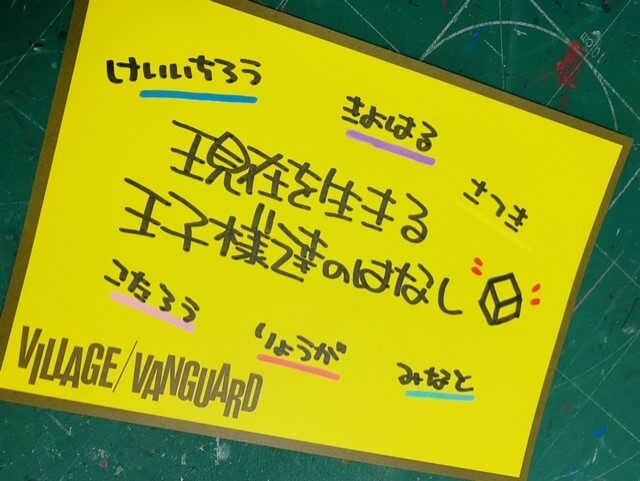 けいいちろう
きよはる
さつき
現在を生きる
王子様てきのはなし
こたろう
りょうが
みなと
VILLAGE/VANGUARD